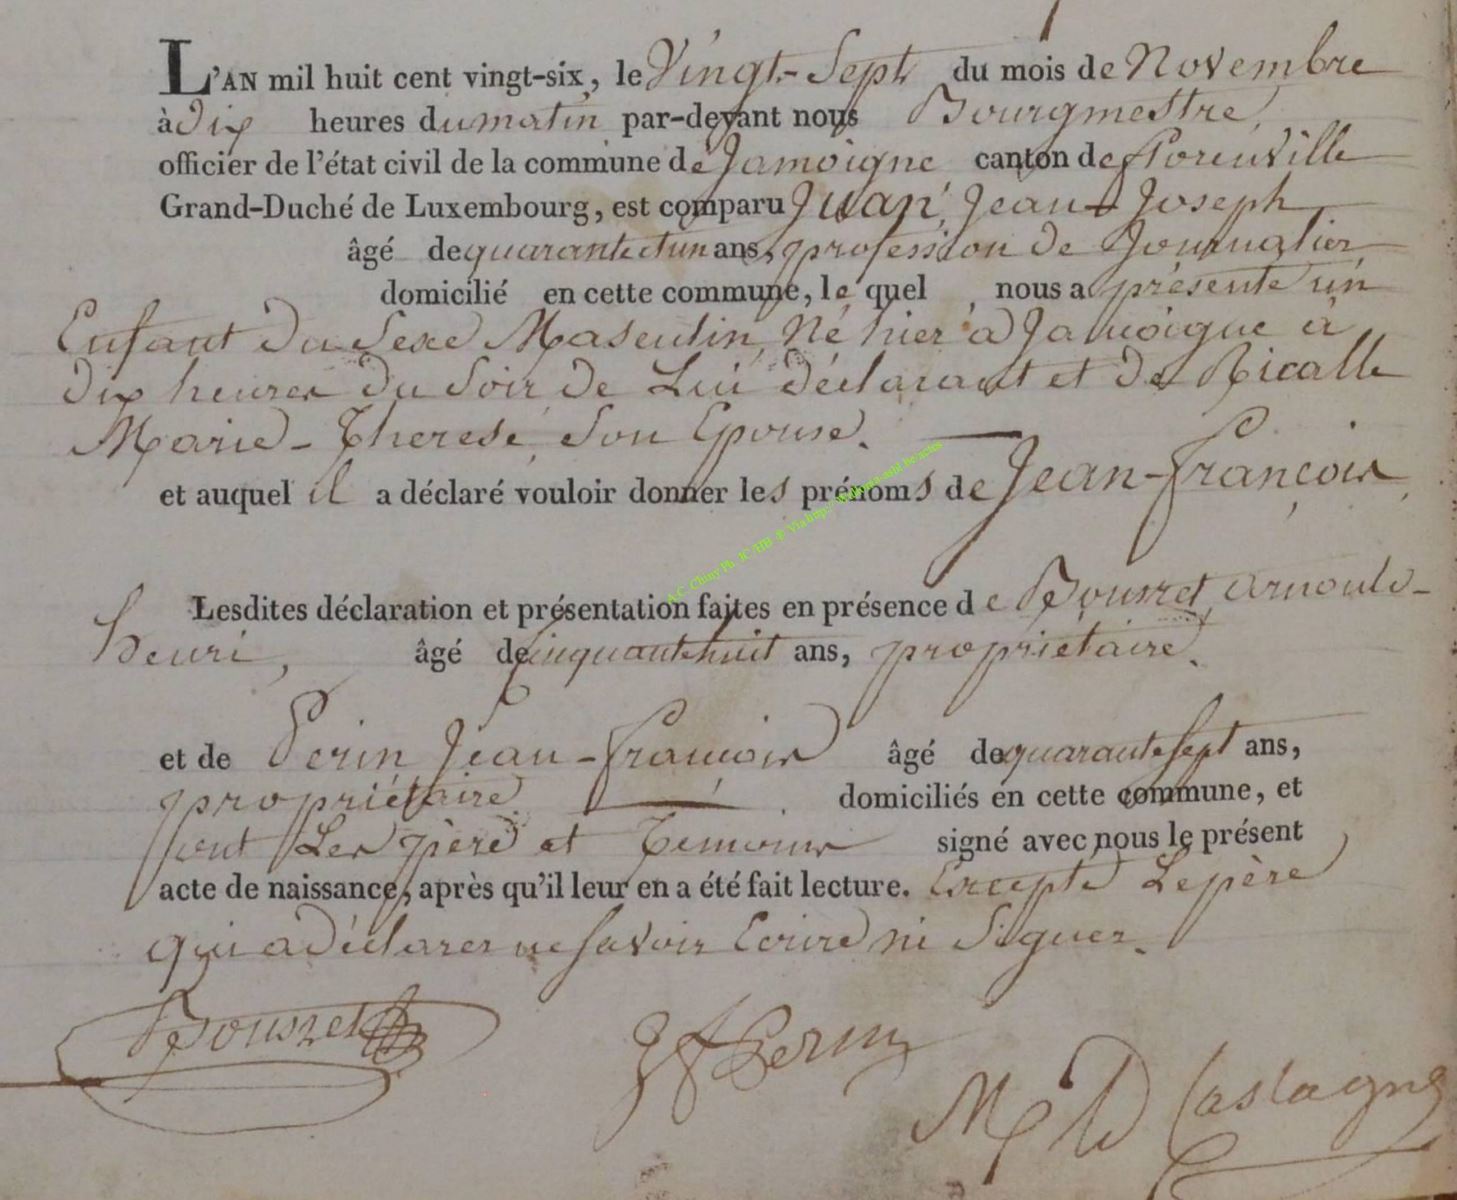 L'AN mil huit cent vingt-six, le Vingt-Sept du mois de Novembre
à dix heures du matin par-devant nous Bourgmestre,
officier de l'état civil de la commune de Jamoigne canton de florenville
Grand-Duché de Luxembourg, est comparu Juan, Jean-Joseph
âgé de quarante et un ans, profession de Journalier
domicilié en cette commune, le quel nous a présenté un
Enfant du Sexe Masculin, Né hier à Jamoigne à
dix heures du Soir de Lui déclarant et de Ricalle
Marie-Therese, Son Epouse.
et auquel il a déclaré vouloir donner les prénoms de Jean-françois,
A.C. Chiny Ph. JC/HB
Lesdites déclaration et présentation faites en présence de arnould-
henri, âgé de cinquante huit ans, propriétaire.
et de Perin Jean-françois âgé de quarante Sept ans,
propriétaire domiciliés en cette commune, et
ont Les père et Temoins signé avec nous le présent
acte de naissance, après qu'il leur en a été fait lecture. Excepté Le père
qui a déclarer ne Savoir Ecrire ni Signer.
JF Perin
Castagne